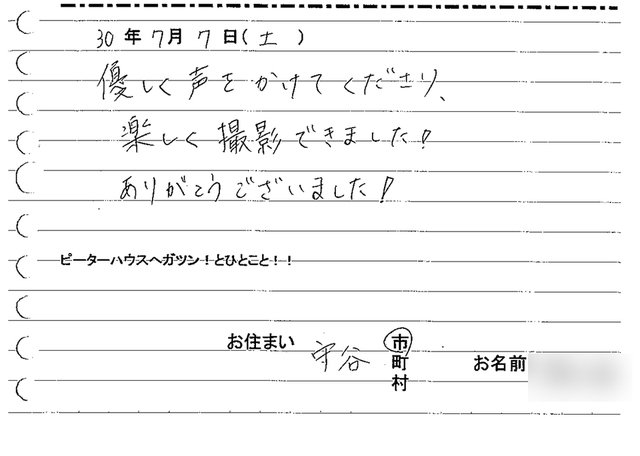 30年7月7日(土)
優しく声をかけてくださり、
楽しく撮影できました!
ありがとうございました!
ピーターハウスへガツン!とひとこと!!
お住まい 守谷 市 町 村 お名前